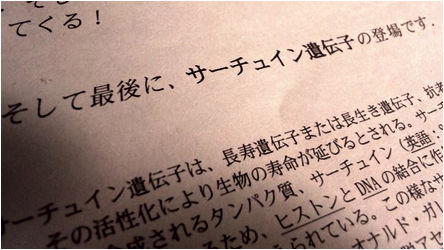 てくる！
そして最後に、サーチュイン遺伝子の登場です.
サーチュイン遺伝子は、長寿遺伝子または長生き遺伝子、抗老
その活性化により生物の寿命が延びるとされる。サー
合成されるタンパク質、サーチュイン（英語：
るため、ヒストンとDNAの結合に作
られている。この様なサ
オナルド・ガ